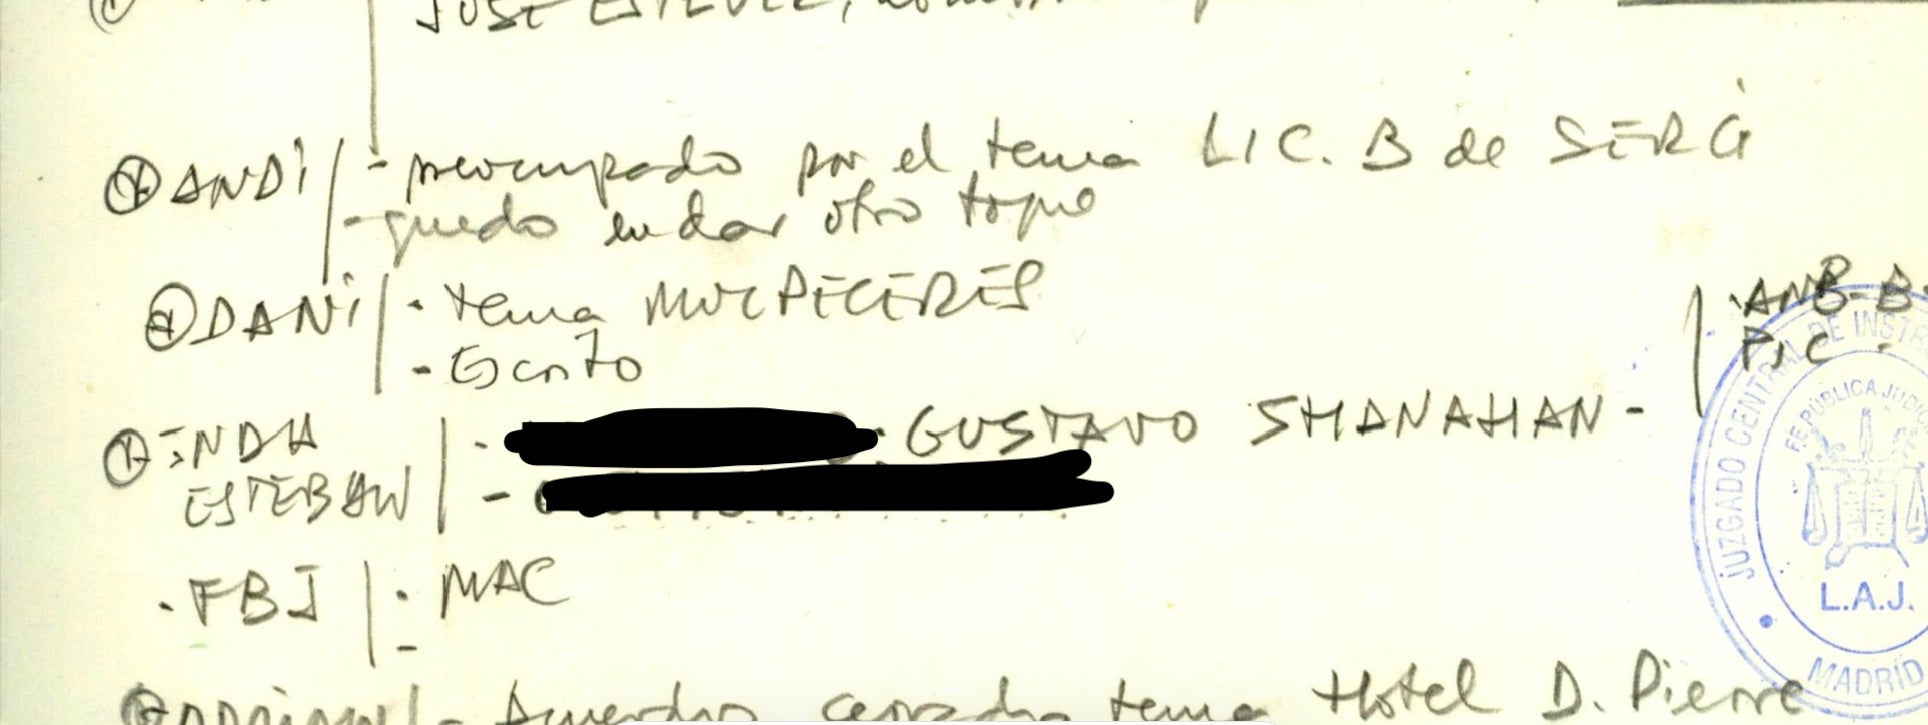 JOSE ESTEVEZ,
ANDI - preocupado por el tema LIC. B de SERGI
- quedo en dar otro toque
DANI · tema MULPECERES
- Escrito
INDA ESTEBAN - : GUSTAVO SHANAHAN -
-
· FBJ · MAC
-
- Acuerdo cerrado tema Hotel D. Pierre
JUZGADO CENTRAL DE INSTR
FE PÚBLICA JUDI
L.A.J.
MADRID